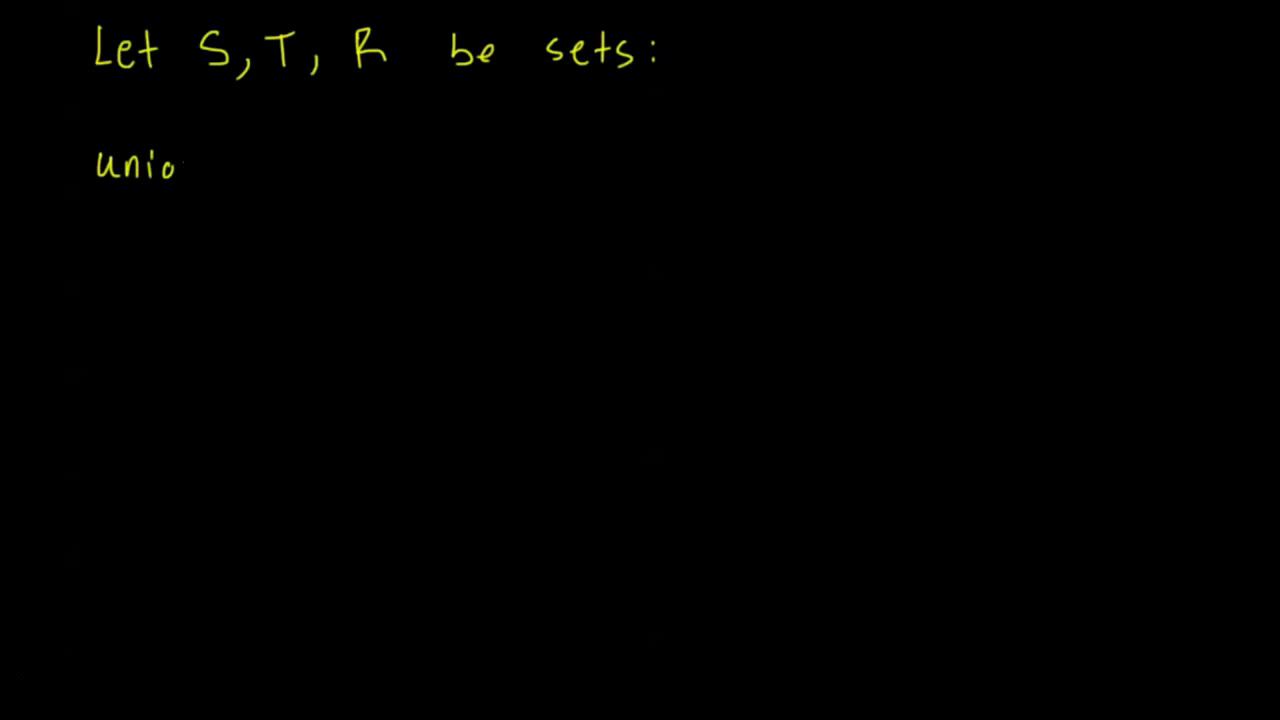 Let S, T, R be sets:
unio